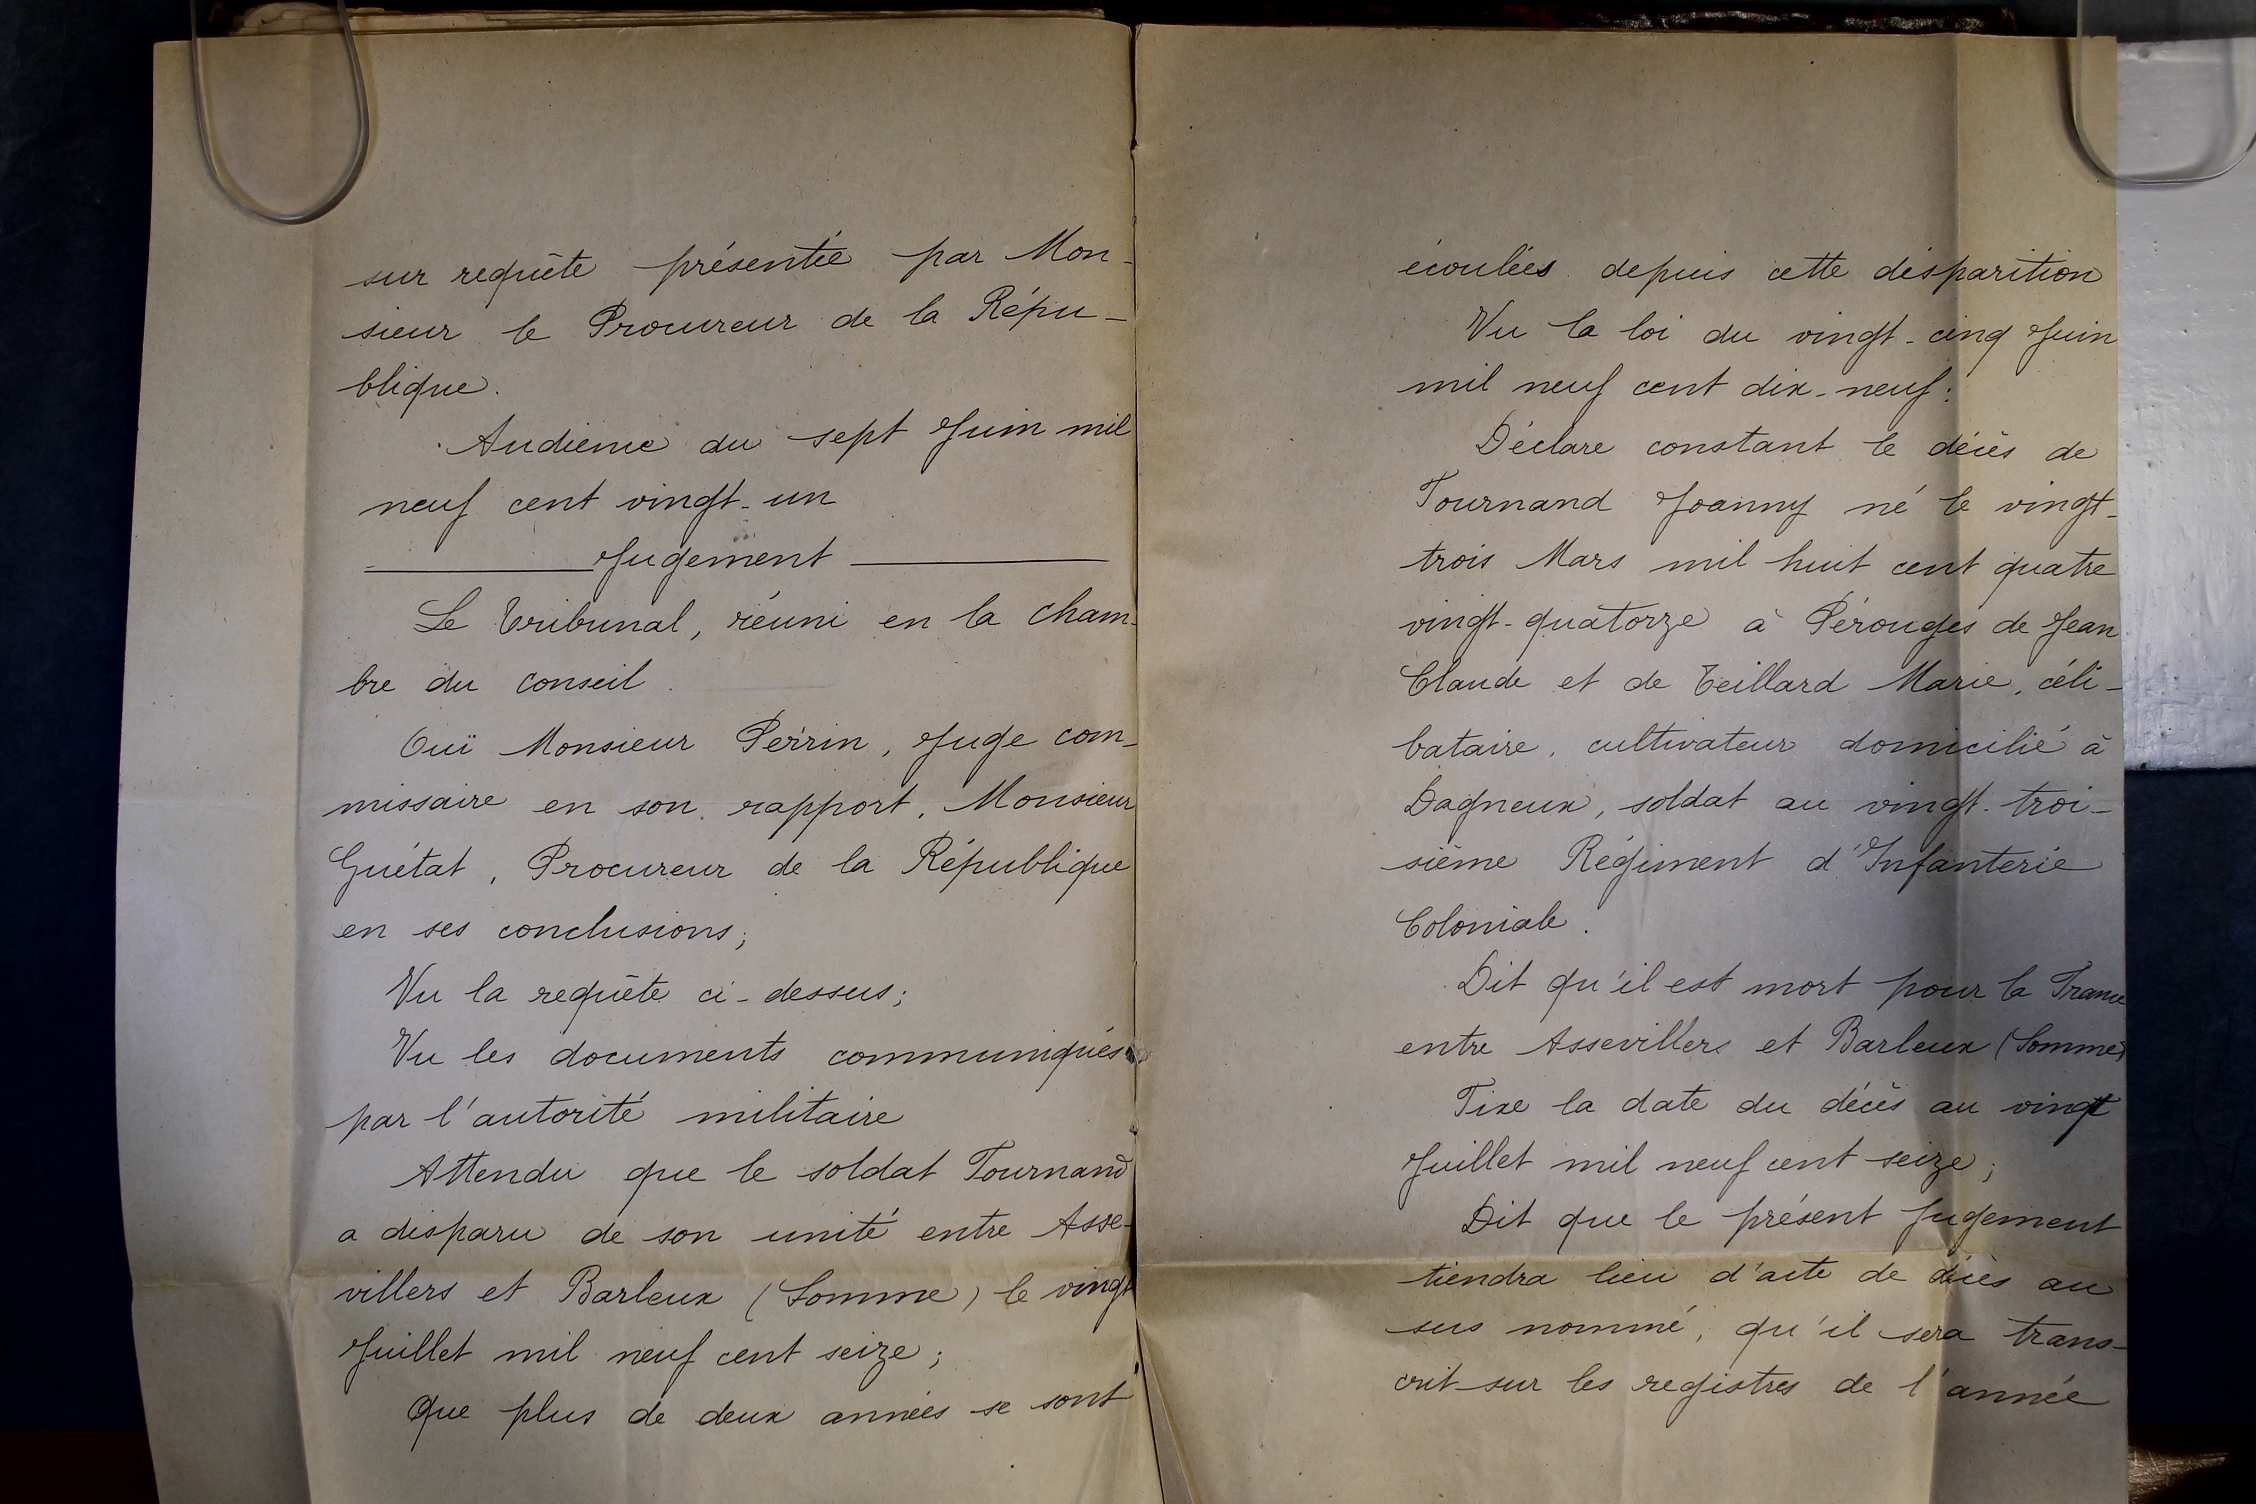 sur requête présentée par Mon-
sieur le Procureur de la Répu-
blique.
Audience du sept Juin mil
neuf cent vingt-un
Jugement
Le Tribunal, réuni en la cham-
bre du conseil.
Ouï Monsieur Perrin, Juge com-
missaire en son rapport, Monsieur
Guétat, Procureur de la République
en ses conclusions;
Vu la requête ci-dessus;
Vu les documents communiqués
par l'autorité militaire
Attendu que le soldat Tournand
a disparu de son unité entre Asse-
villers et Barleux (Somme) le vingt
Juillet mil neuf cent seize;
Que plus de deux années se sont
écoulées depuis cette disparition
Vu la loi du vingt-cinq Juin
mil neuf cent dix-neuf:
Déclare constant le décès de
Tournand Joanny né le vingt-
trois Mars mil huit cent quatre
vingt-quatorze à Pérouges de Jean
Claude et de Teillard Marie, céli-
bataire, cultivateur domicilié à
Dagneux, soldat au vingt-troi-
sième Régiment d'Infanterie
Coloniale.
Dit qu'il est mort pour la France
entre Assevillers et Barleux (Somme)
Fixe la date du décès au vingt
Juillet mil neuf cent seize;
Dit que le présent Jugement
tiendra lieu d'acte de décès au
sus nommé, qu'il sera trans-
crit sur les registres de l'année